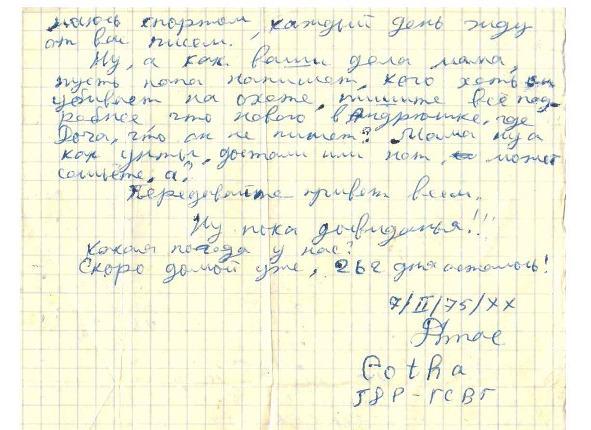 маюсь спортом, каждый день жду
от вас писем.
Ну, а как ваши дела мама,
пусть папа напишет, кого хоть он
убивает на охоте, пишите всё под-
робнее что нового в Андрюшке, где
Доча, что он не пишет? Мама ну а
как унты, достали или нет, может
сошьёте, а?
Передавайте привет всем.
Ну пока досвиданья!!!
Какая погода у нас?
Скоро домой уже, 262 дня осталось!
7/II/75/XX
Gotha
ГДР-ГСВГ